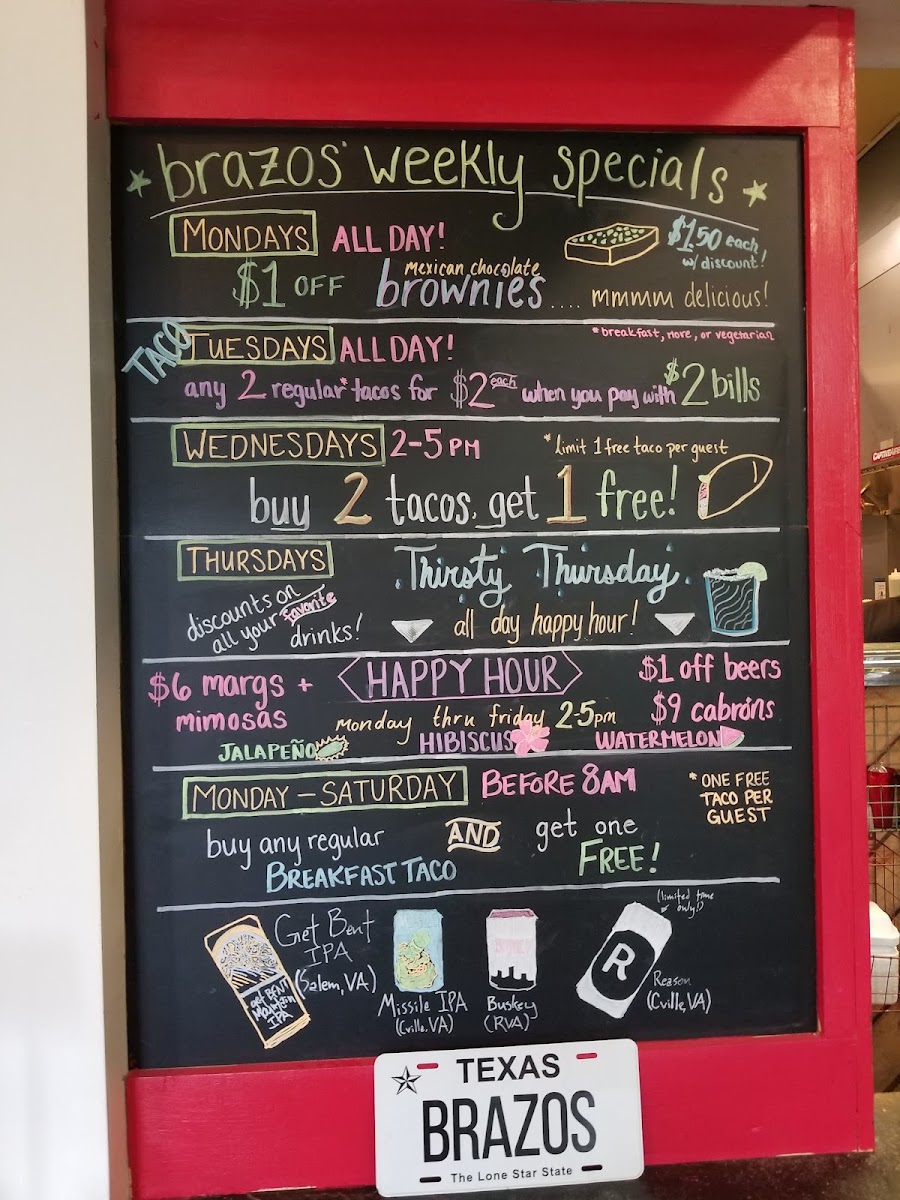 brazos' weekly specials
MONDAYS ALL DAY!
$1.50 each
w/ discount!
$1 OFF mexican chocolate
brownies.... mmmm delicious!
TACO TUESDAYS ALL DAY!
*breakfast, nore, or vegetarian
any 2 regular* tacos for $2 each when you pay with $2 bills
WEDNESDAYS 2-5 PM
*Limit 1 free taco per guest
buy 2 tacos, get 1 free!
THURSDAYS
Thirsty Thursday
discounts on
all your favorite
drinks!
all day happy hour!
HAPPY HOUR
$6 margs +
mimosas
$1 off beers
$9 cabróns
monday thru friday 2-5pm
JALAPEÑO
HIBISCUS
WATERMELON
MONDAY – SATURDAY BEFORE 8AM
*ONE FREE
TACO PER
GUEST
buy any regular
BREAKFAST TACO
AND
get one
FREE!
Get Bent
IPA
(Salem, VA)
get BENT
Mountain
IPA
Missile IPA
(Cville, VA)
Buskey
(RVA)
R
(limited time
only!)
Reason
(Cville, VA)
TEXAS
BRAZOS
The Lone Star State